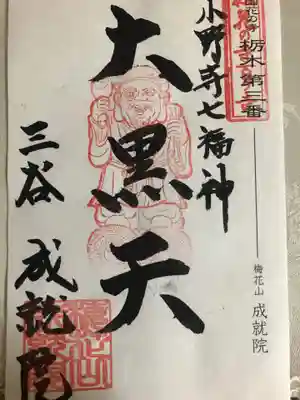 国花の寺
栃木第三番
梅花山 成就院
小野寺七福神
大黒天
三谷 成就院